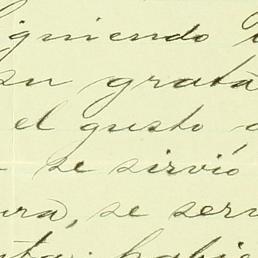 iguiendo
su grata
el gusto
se sirvió
ura, se serv
ta habie